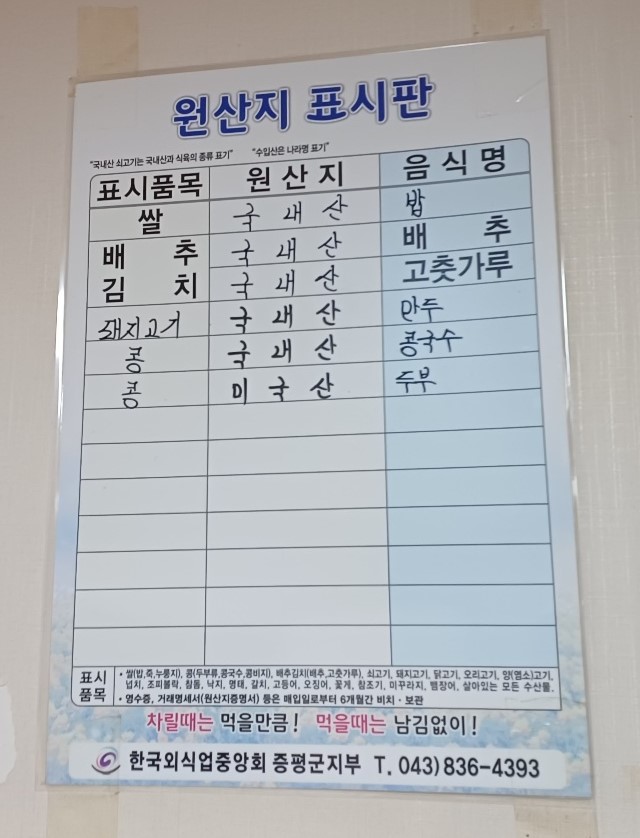 원산지 표시판
"국내산 쇠고기는 국내산과 식육의 종류 표기" "수입산은 나라명 표기"
표시품목 원산지 음식명
쌀 국내산 밥
배추 국내산 배추
김치 국내산 고춧가루
돼지고기 국내산 만두
콩 국내산 콩국수
콩 미국산 두부
표시품목
• 쌀(밥,죽,누룽지), 콩(두부류,콩국수,콩비지), 배추김치(배추,고춧가루), 쇠고기, 돼지고기, 닭고기, 오리고기, 양(염소)고기,
넙치, 조피볼락, 참돔, 낙지, 명태, 갈치, 고등어, 오징어, 꽃게, 참조기, 미꾸라지, 뱀장어, 살아있는 모든 수산물.
• 영수증, 거래명세서(원산지증명서) 등은 매입일로부터 6개월간 비치·보관
차릴때는 먹을만큼! 먹을때는 남김없이!
한국외식업중앙회 증평군지부 T. 043) 836-4393